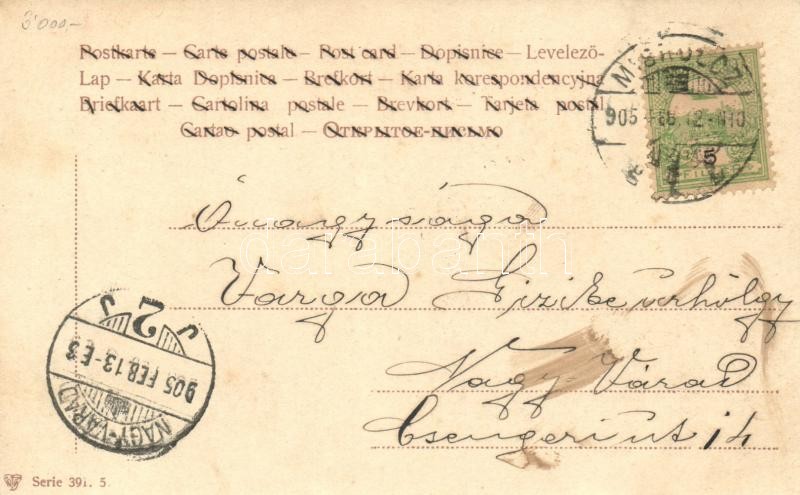 3'000.-
Postkarte – Carte postale – Post card – Dopisnice – Levelező-
Lap – Karta Dopisnica – Brefkort – Karta korespondencyjna
Briefkaart – Cartolina postale – Brevkort – Tarjeta postal
Cartao postal – Открытое письмо
905 FEB 12
5
Őnagysága
Varga Gizike úrhölgy
Nagy-Várad
Csengeri ut 14
J 2 J
905 FEB.13-E3
NAGY-VÁRAD
darabanth
Serie 391. 5.